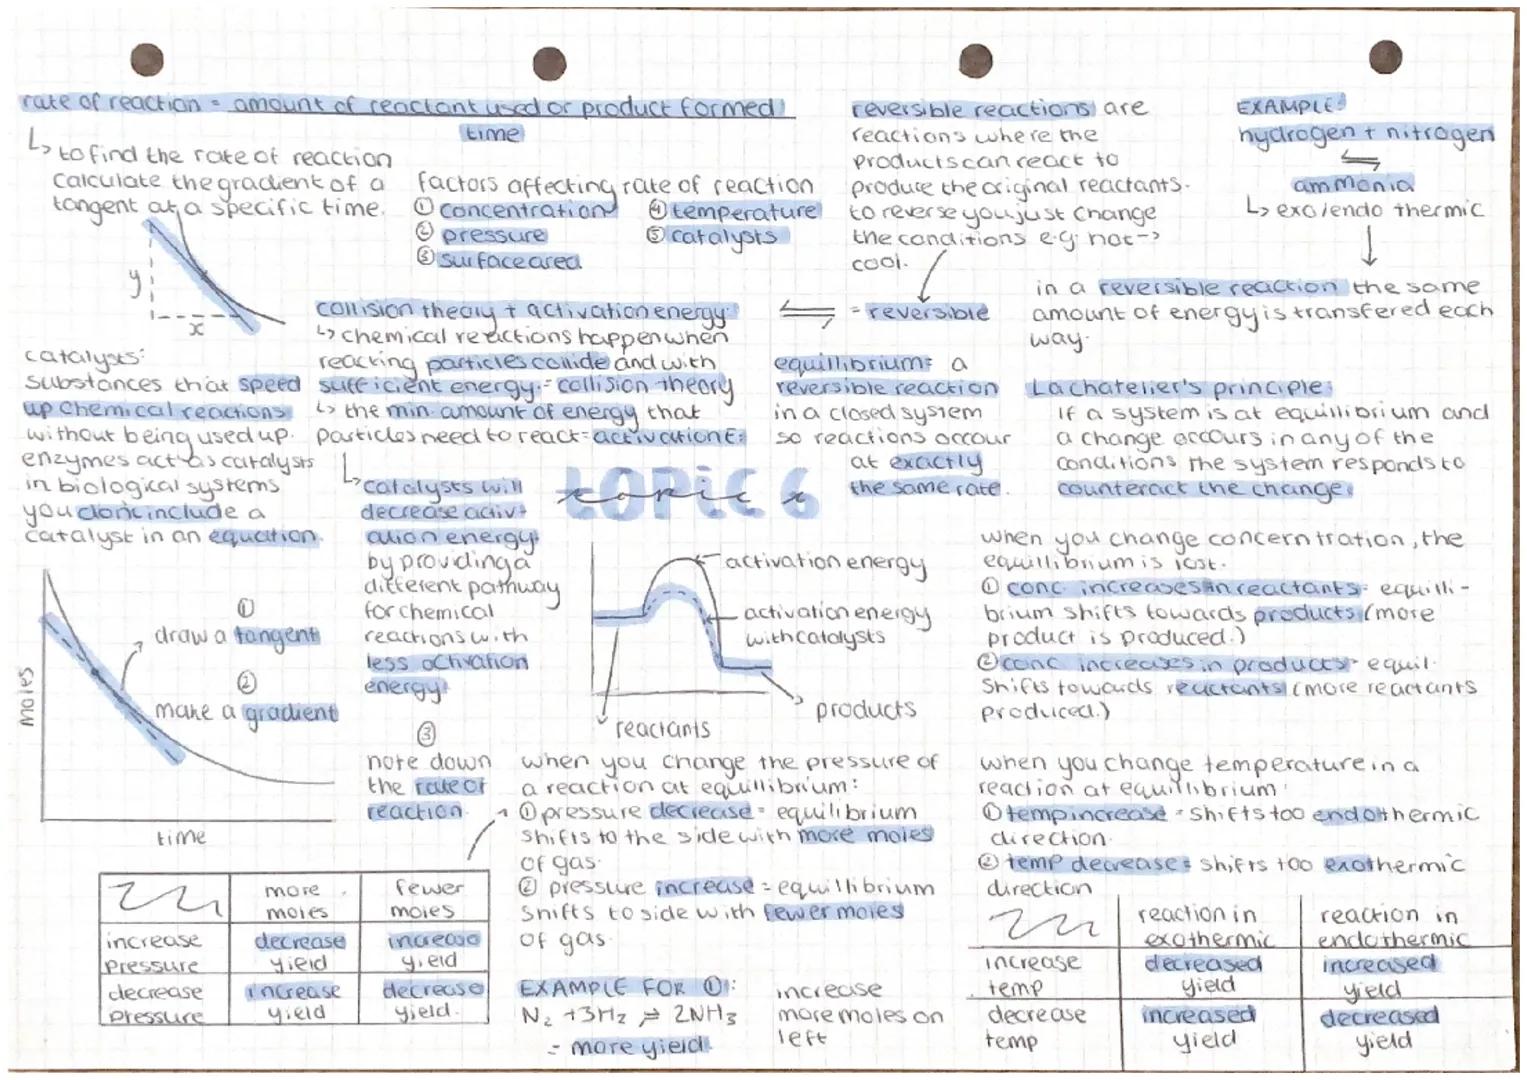 rate of reaction = amount of reactant used or product formed
time
↳ to find the rate of reaction
calculate the gradient of a
tangent at a specific time.
y
x
factors affecting rate of reaction
① concentration
② pressure
③ surface area
④ temperature
⑤ catalysts
reversible reactions are
reactions where the
products can react to
produce the original reactants.
to reverse you just change
the conditions e.g. hot->
cool.
⇌ = reversible
EXAMPLE:
hydrogen + nitrogen
⇌
ammonia
↳ exo/endo thermic
in a reversible reaction the same
amount of energy is transfered each
way.
collision theory + activation energy:
↳ chemical reactions happen when
reacting particles collide and with
sufficient energy. = collision theory
↳ the min. amount of energy that
particles need to react = activation E:
catalysts:
substances that speed
up chemical reactions
without being used up.
enzymes act as catalysts
in biological systems
you dont include a
catalyst in an equation.
↳ catalysts will
decrease activ-
ation energy
by providing a
different pathway
for chemical
reactions with
less activation
energy!
equillibrium: a
reversible reaction
in a closed system
so reactions occour
at exactly
the same rate.
La chatelier's principle:
if a system is at equillibrium and
a change occours in any of the
conditions the system responds to
counteract the change.
TOPIC 6
topic 6
activation energy
activation energy
with catalysts
reactants
products
moles
time
①
draw a tangent
②
make a gradient
③
note down
the rate of
reaction.
when you change concerntration, the
equillibrium is lost.
① conc. increases in reactants = equilli-
brium shifts towards products (more
product is produced.)
② conc. increases in products = equil.
shifts towards reactants (more reactants
produced.)
when you change the pressure of
a reaction at equillibrium:
① pressure decrease = equilibrium
shifts to the side with more moles
of gas.
② pressure increase = equillibrium
shifts to side with fewer moles
of gas.
EXAMPLE FOR ①:
N₂ + 3H₂ ⇌ 2NH₃
= more yield.
increase
more moles on
left
when you change temperature in a
reaction at equillibrium:
① temp increase = shifts too endothermic
direction.
② temp decrease = shifts too exothermic
direction
more moles
fewer moles
increase pressure
decrease yield
increase yield
decrease pressure
increase yield
decrease yield.
reaction in exothermic
reaction in endothermic
increase temp
decreased yield
increased yield
decrease temp
increased yield
decreased yield